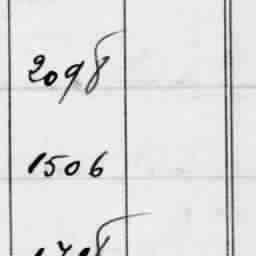 2098
1506